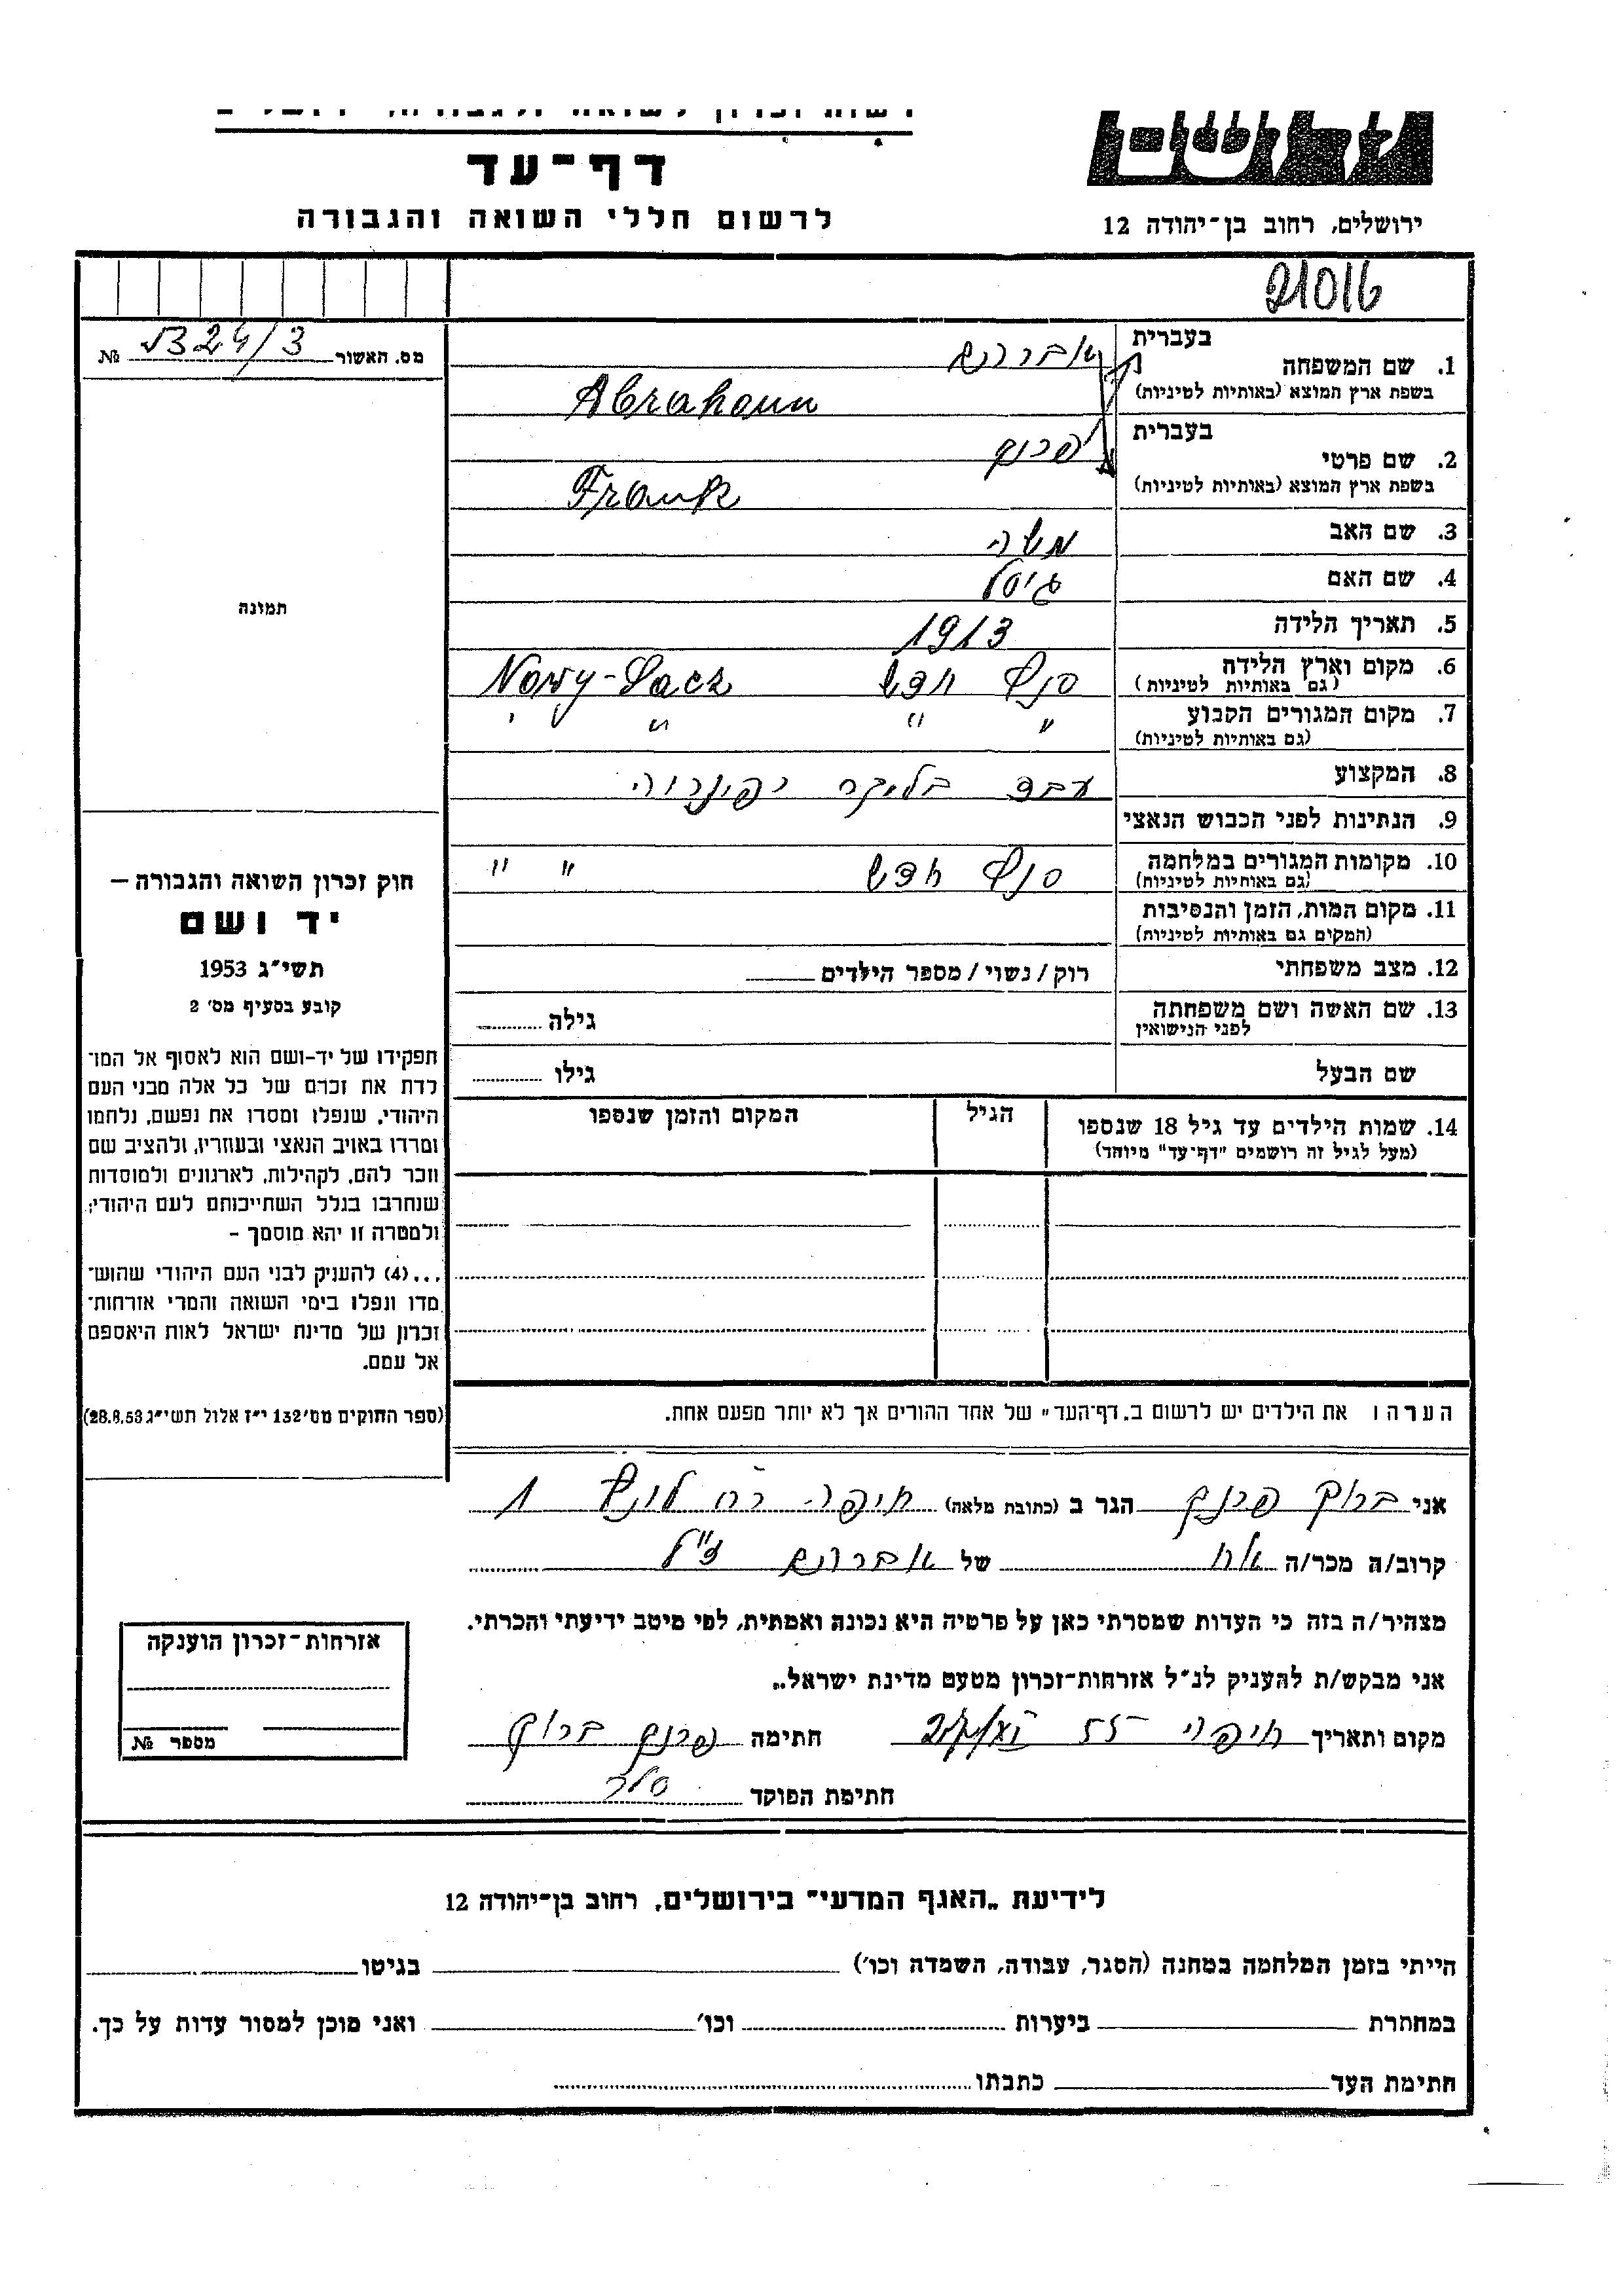 ושם
ירושלים, רחוב בן-יהודה 12
דף-עד
לרשום חללי השואה והגבורה
21016
מס. האשור № 324/3
תמונה
1. שם המשפחה
בעברית אברהם
בשפת ארץ המוצא (באותיות לטיניות) Abraham
2. שם פרטי
בעברית פרנק
בשפת ארץ המוצא (באותיות לטיניות) Frank
3. שם האב משה
4. שם האם גיסל
5. תאריך הלידה 1913
6. מקום וארץ הלידה סנץ חדש Nowy-Sacz
(גם באותיות לטיניות)
7. מקום המגורים הקבוע " " " "
(גם באותיות לטיניות)
8. המקצוע עבד
9. הנתינות לפני הכבוש הנאצי
10. מקומות המגורים במלחמה סנץ חדש " "
(גם באותיות לטיניות)
11. מקום המות, הזמן והנסיבות
(המקום גם באותיות לטיניות)
12. מצב משפחתי רוק / נשוי / מספר הילדים
13. שם האשה ושם משפחתה גילה
לפני הנישואין
שם הבעל גילו
14. שמות הילדים עד גיל 18 שנספו הגיל המקום והזמן שנספו
(מעל לגיל זה רושמים "דף-עד" מיוחד)
הערה ו את הילדים יש לרשום ב„דף-העד" של אחד ההורים אך לא יותר מפעם אחת.
חוק זכרון השואה והגבורה –
יד ושם
תשי"ג 1953
קובע בסעיף מס' 2
תפקידו של יד-ושם הוא לאסוף אל המו־
לדת את זכרם של כל אלה מבני העם
היהודי, שנפלו ומסרו את נפשם, נלחמו
ומרדו באויב הנאצי ובעוזריו, ולהציב שם
וזכר להם, לקהילות, לארגונים ולמוסדות
שנחרבו בגלל השתייכותם לעם היהודי;
ולמטרה זו יהא מוסמך –
...(4) להעניק לבני העם היהודי שהוש־
מדו ונפלו בימי השואה והמרי אזרחות־
זכרון של מדינת ישראל לאות היאספם
אל עמם.
(ספר החוקים מס' 132 י"ז אלול תשי"ג 28.8.53)
אני ברוך פרנק הגר ב (כתובת מלאה) חיפה 1
קרוב/ה מכר/ה אח של אברהם ז"ל
מצהיר/ה בזה כי העדות שמסרתי כאן על פרטיה היא נכונה ואמתית, לפי מיטב ידיעתי והכרתי.
אני מבקש/ת להעניק לנ"ל אזרחות-זכרון מטעם מדינת ישראל.
מקום ותאריך חיפה 55 חתימה פרנק ברוך
חתימת הפוקד
אזרחות-זכרון הוענקה
מספר №
לידיעת „האגף המדעי" בירושלים, רחוב בן-יהודה 12
הייתי בזמן המלחמה במחנה (הסגר, עבודה, השמדה וכו') בגיטו
במחתרת ביערות וכו' ואני מוכן למסור עדות על כך.
חתימת העד כתבתו